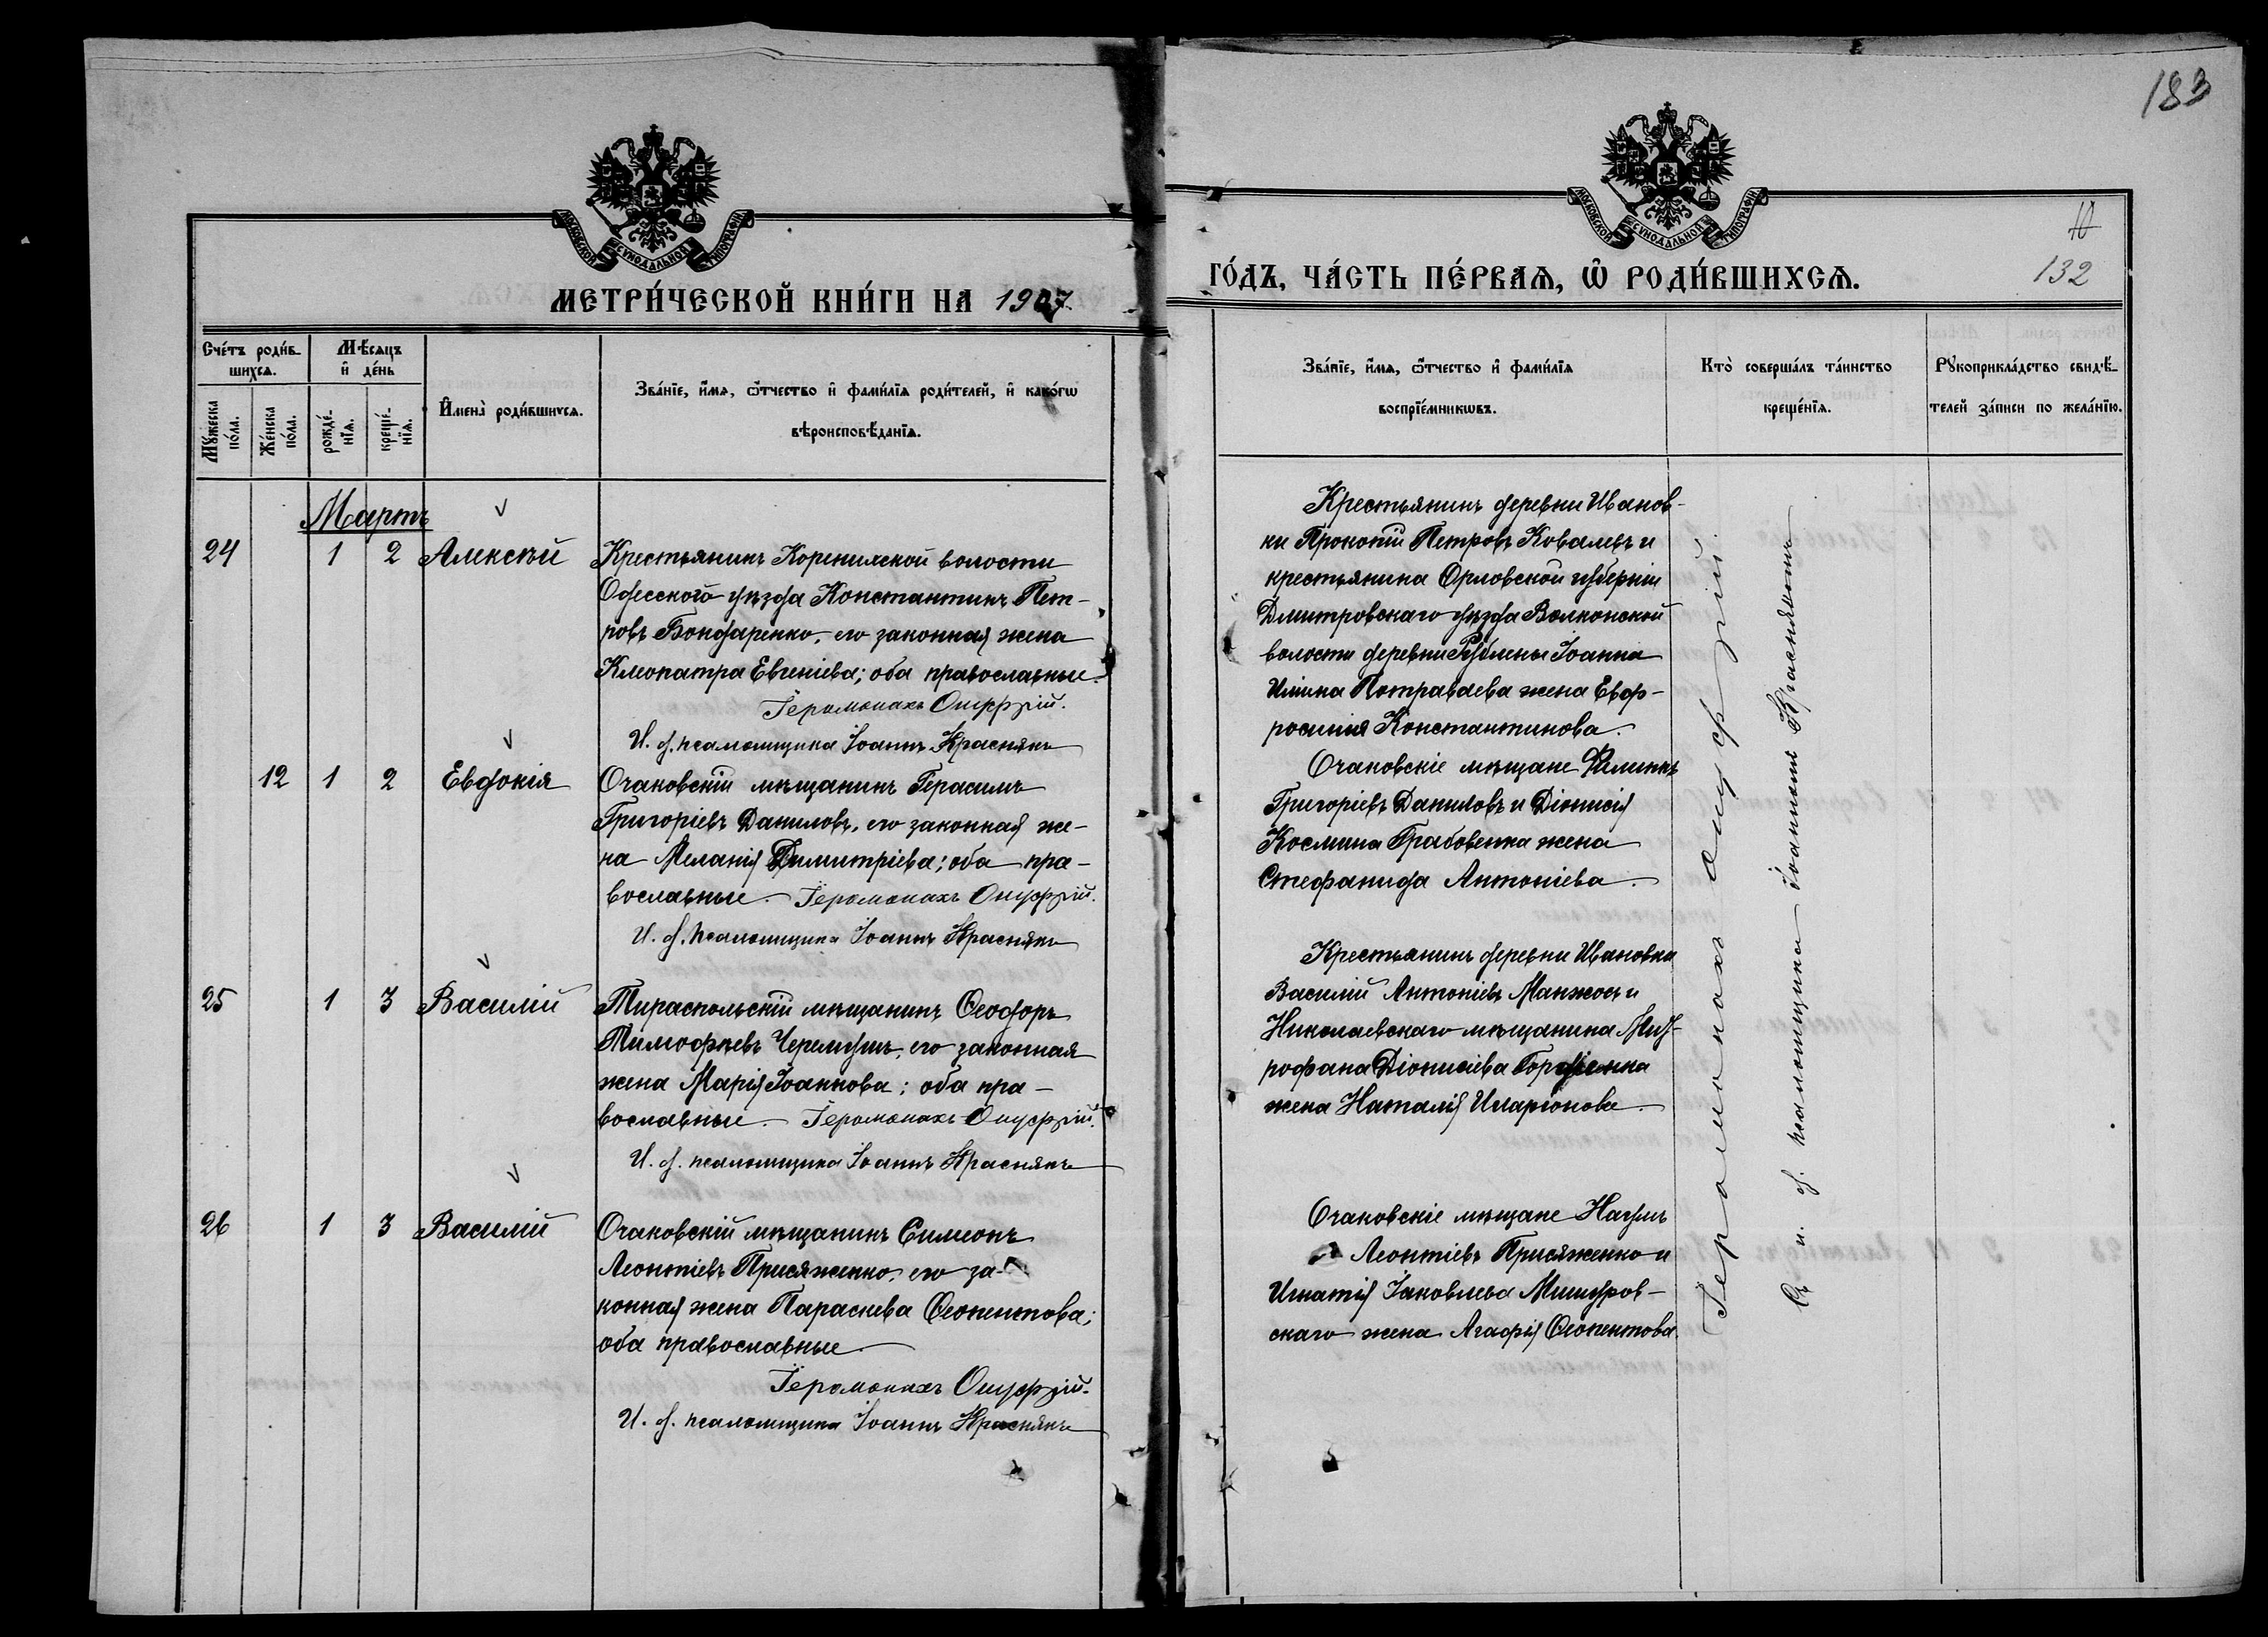 183
МОСКОВСКОЙ СУНОДАЛЬНОЙ ТИПОГРАФІИ
МЕТРИ́ЧЕСКОЙ КНИ́ГИ НА 1907
Сче́тъ роди́вшихсѧ.
Мѣ́сѧцъ и҆ де́нь
Мꙋ́жеска по́ла.
Же́нска по́ла.
рожде́нїѧ.
креще́нїѧ.
И҆мена̀ роди́вшихсѧ.
Зва́нїе, и҆́мѧ, ѻ҆́тчество и҆ фами́лїѧ роди́телей, и҆ како́гѡ
вѣроисповѣ́данїѧ.
Мартъ
24 1 2 Алексѣй
Крестьянинъ Коренихской волости
Одесского уѣзда Константинъ Пет-
ровъ Бондаренко, его законная жена
Клеопатра Евгеніева; оба православные.
Іеромонахъ Онуфрій.
И. д. псаломщика Іоаннъ Краснякъ
12 1 2 Евдокія
Очаковскій мѣщанинъ Герасимъ
Григоріевъ Даниловъ, его законная же-
на Меланія Димитріева; оба пра-
вославные. Іеромонахъ Онуфрій.
И. д. псаломщика Іоаннъ Краснякъ
25 1 3 Василій
Тираспольскій мѣщанинъ Ѳеодоръ
Тимофѣевъ Черемушъ, его законная
жена Марія Іоаннова; оба пра-
вославные. Іеромонахъ Онуфрій.
И. д. псаломщика Іоаннъ Краснякъ
26 1 3 Василій
Очаковскій мѣщанинъ Симеонъ
Леонтіевъ Присяженко, его за-
конная жена Параскева Ѳеопентова;
оба православные.
Іеромонахъ Онуфрій.
И. д. псаломщика Іоаннъ Краснякъ
МОСКОВСКОЙ СУНОДАЛЬНОЙ ТИПОГРАФІИ
10
132
ГО́ДЪ, ЧА́СТЬ ПЕ́РВАѦ, Ѽ РОДИ́ВШИХСѦ.
Зва́нїе, и҆́мѧ, ѻ҆́тчество и҆ фами́лїѧ
воспрїе́мникѡвъ.
Кто̀ соверша́лъ та́инство
креще́нїѧ.
Рꙋкоприкла́дство свидѣ́-
телей за́писи по жела́нїю.
Крестьянинъ деревни Иванов-
ки Прокопій Петровъ Ковалевъ и
крестьянина Орловской губерніи
Дмитровскаго уѣзда Волконской
волости деревни Іоанна
Иліина Потраваева жена Евф-
росинія Константинова.
Очаковскіе мѣщане Филиппъ
Григоріевъ Даниловъ и Діонисія
Космина Грабовенка жена
Стефанида Антоніева.
Крестьянинъ деревни Ивановки
Василій Антоніевъ Манжосъ и
Николаевскаго мѣщанина Мит-
рофана Діонисіева Гордіенка
жена Наталія Иларіонова.
Очаковскіе мѣщане Наумъ
Леонтіевъ Присяженко и
Игнатія Іаковлева Мишуров-
скаго жена Агафія Ѳеопентова.
Іеромонахъ Онуфрій.
Съ и. д. псаломщика Іоанномъ Краснякомъ